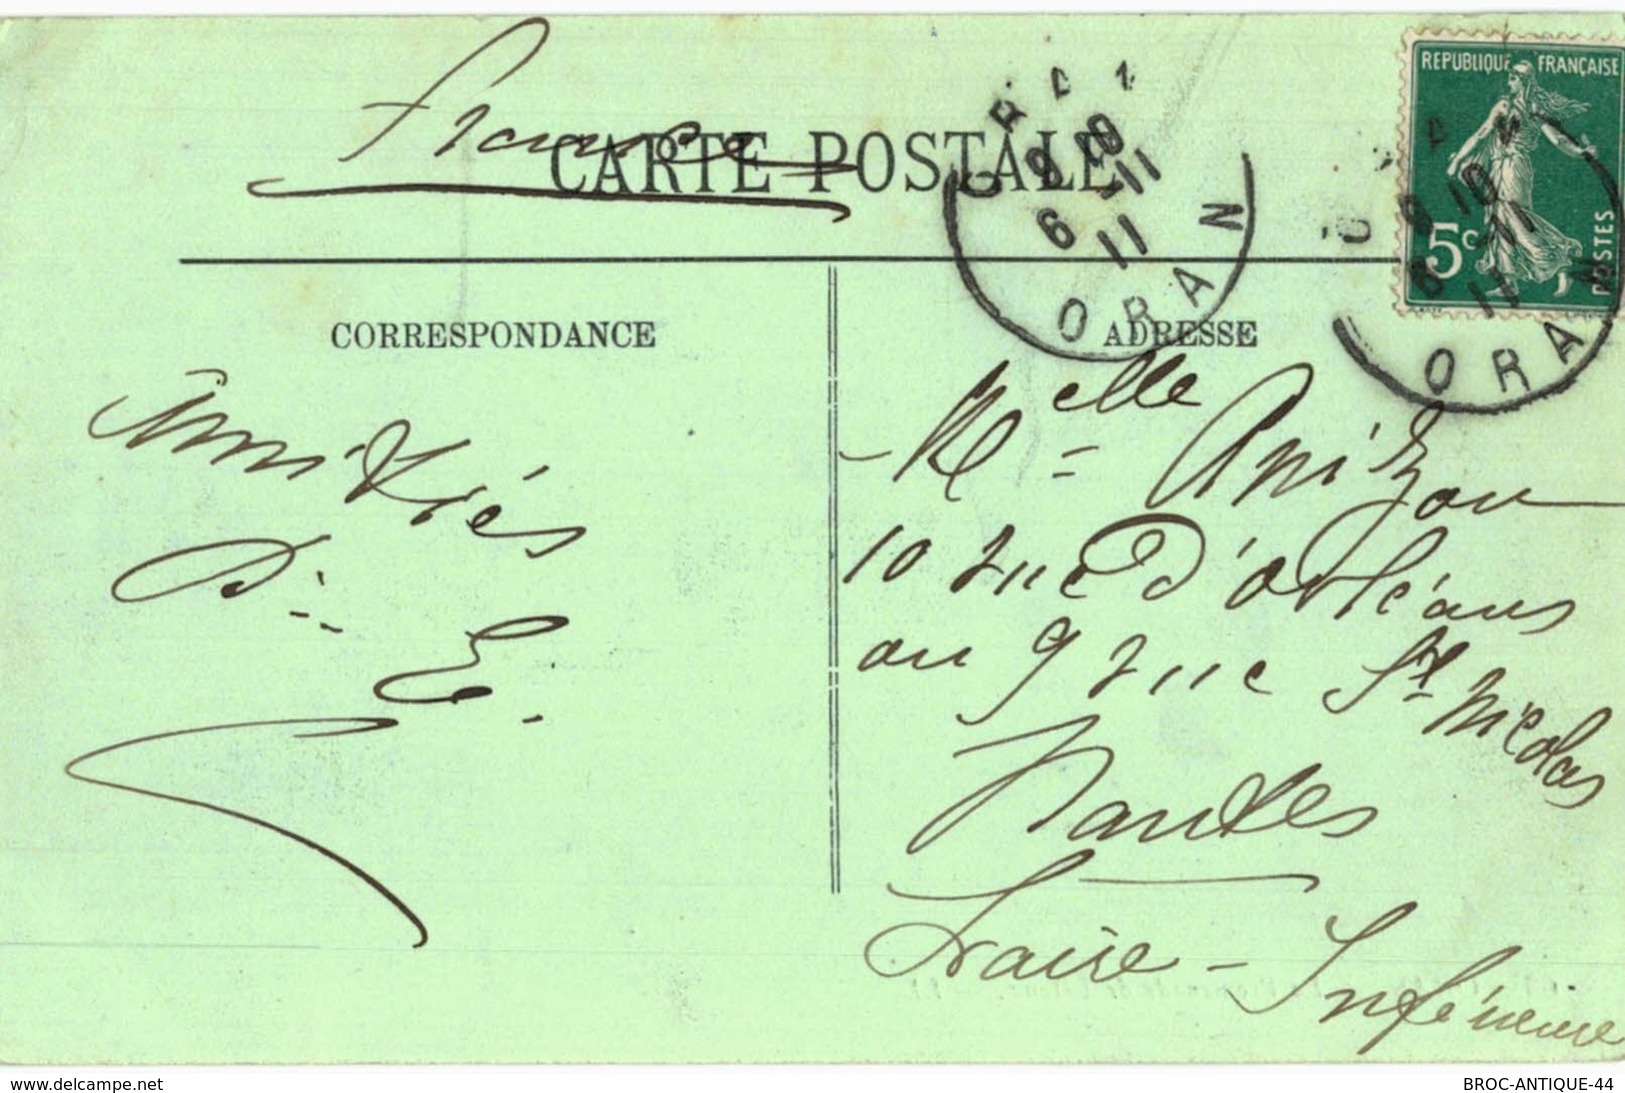 France
CARTE POSTALE
ORAN
9 10
6 -11
11
ORAN
REPUBLIQUE FRANÇAISE
5c
POSTES
9 10
6 -11
11
ORAN
CORRESPONDANCE
ADRESSE
Amitiés
E.
Melle Anizon
10 rue d'Orléans
ou 9 rue St Nicolas
Nantes
Loire-Inférieure
www.delcampe.net
BROC-ANTIQUE-44